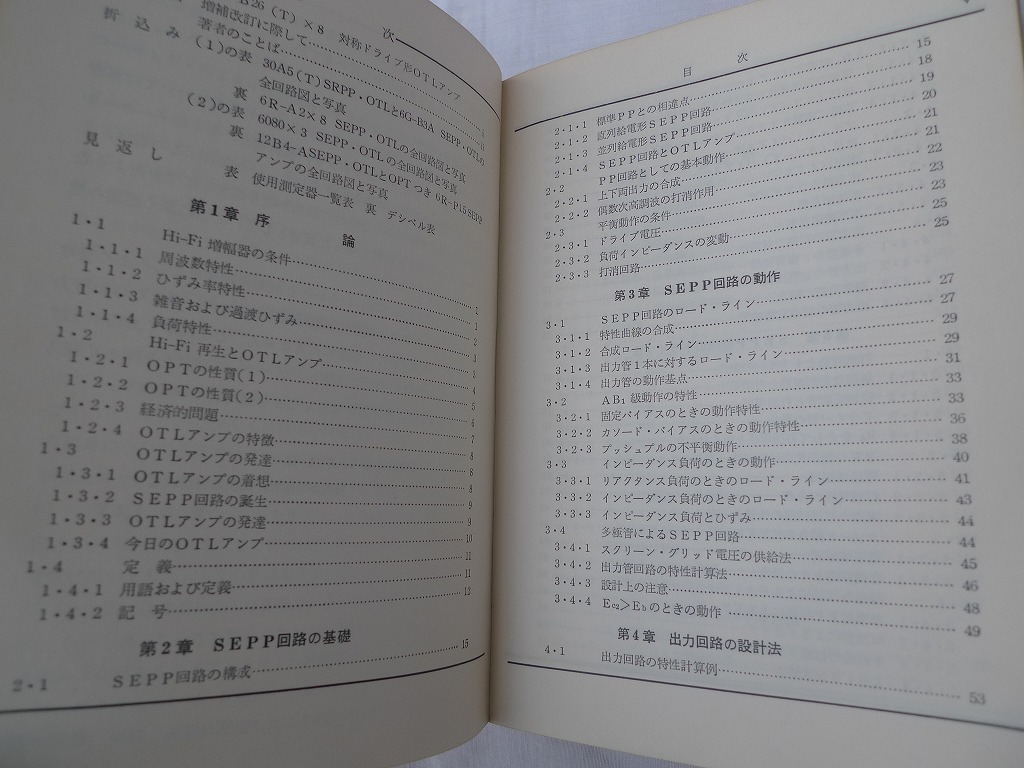 次
B26(T)×8 対称ドライブ形OTLアンプ
増補改訂に際して
著者のことば
折込み (1)の表 30A5(T)SRPP・OTLと6G-B3A SEPP・OTLの
全回路図と写真
裏 6R-A2×8 SEPP・OTLの全回路図と写真
(2)の表 6080×3 SEPP・OTLの全回路図と写真
裏 12B4-ASEPP・OTLとOPTつき 6R-P15SEPP
アンプの全回路図と写真
見返し 表 使用測定器一覧表 裏 デシベル表
第1章 序 論
1・1 Hi-Fi 増幅器の条件
1・1・1 周波数特性 2
1・1・2 ひずみ率特性 1
1・1・3 雑音および過渡ひずみ
1・1・4 負荷特性
1・2 Hi-Fi 再生とOTLアンプ
1・2・1 OPTの性質(1) 4
1・2・2 OPTの性質(2) 5
1・2・3 経済的問題 6
1・2・4 OTLアンプの特徴 7
1・3 OTLアンプの発達 8
1・3・1 OTLアンプの着想 8
1・3・2 SEPP回路の誕生 9
1・3・3 OTLアンプの発達 9
1・3・4 今日のOTLアンプ 10
1・4 定 義 11
1・4・1 用語および定義 11
1・4・2 記 号 12
第2章 SEPP回路の基礎
2・1 SEPP回路の構成 15
目 次
2・1・1 標準PPとの相違点 15
2・1・2 直列給電形SEPP回路 18
2・1・3 並列給電形SEPP回路 19
2・1・4 SEPP回路とOTLアンプ 20
2・2 PP回路としての基本動作 21
2・2・1 上下両出力の合成 21
2・2・2 偶数次高調波の打消作用 22
2・3 平衡動作の条件 23
2・3・1 ドライブ電圧 23
2・3・2 負荷インピーダンスの変動 25
2・3・3 打消回路 25
第3章 SEPP回路の動作
3・1 SEPP回路のロード・ライン 27
3・1・1 特性曲線の合成 27
3・1・2 合成ロード・ライン 29
3・1・3 出力管1本に対するロード・ライン 29
3・1・4 出力管の動作基点 31
3・2 AB₁級動作の特性 33
3・2・1 固定バイアスのときの動作特性 33
3・2・2 カソード・バイアスのときの動作特性 36
3・2・3 プッシュプルの不平衡動作 38
3・3 インピーダンス負荷のときの動作 40
3・3・1 リアクタンス負荷のときのロード・ライン 41
3・3・2 インピーダンス負荷のときのロード・ライン 43
3・3・3 インピーダンス負荷とひずみ 44
3・4 多極管によるSEPP回路 44
3・4・1 スクリーン・グリッド電圧の供給法 45
3・4・2 出力管回路の特性計算法 46
3・4・3 設計上の注意 48
3・4・4 Ec₂>Ebのときの動作 49
第4章 出力回路の設計法
4・1 出力回路の特性計算例 53